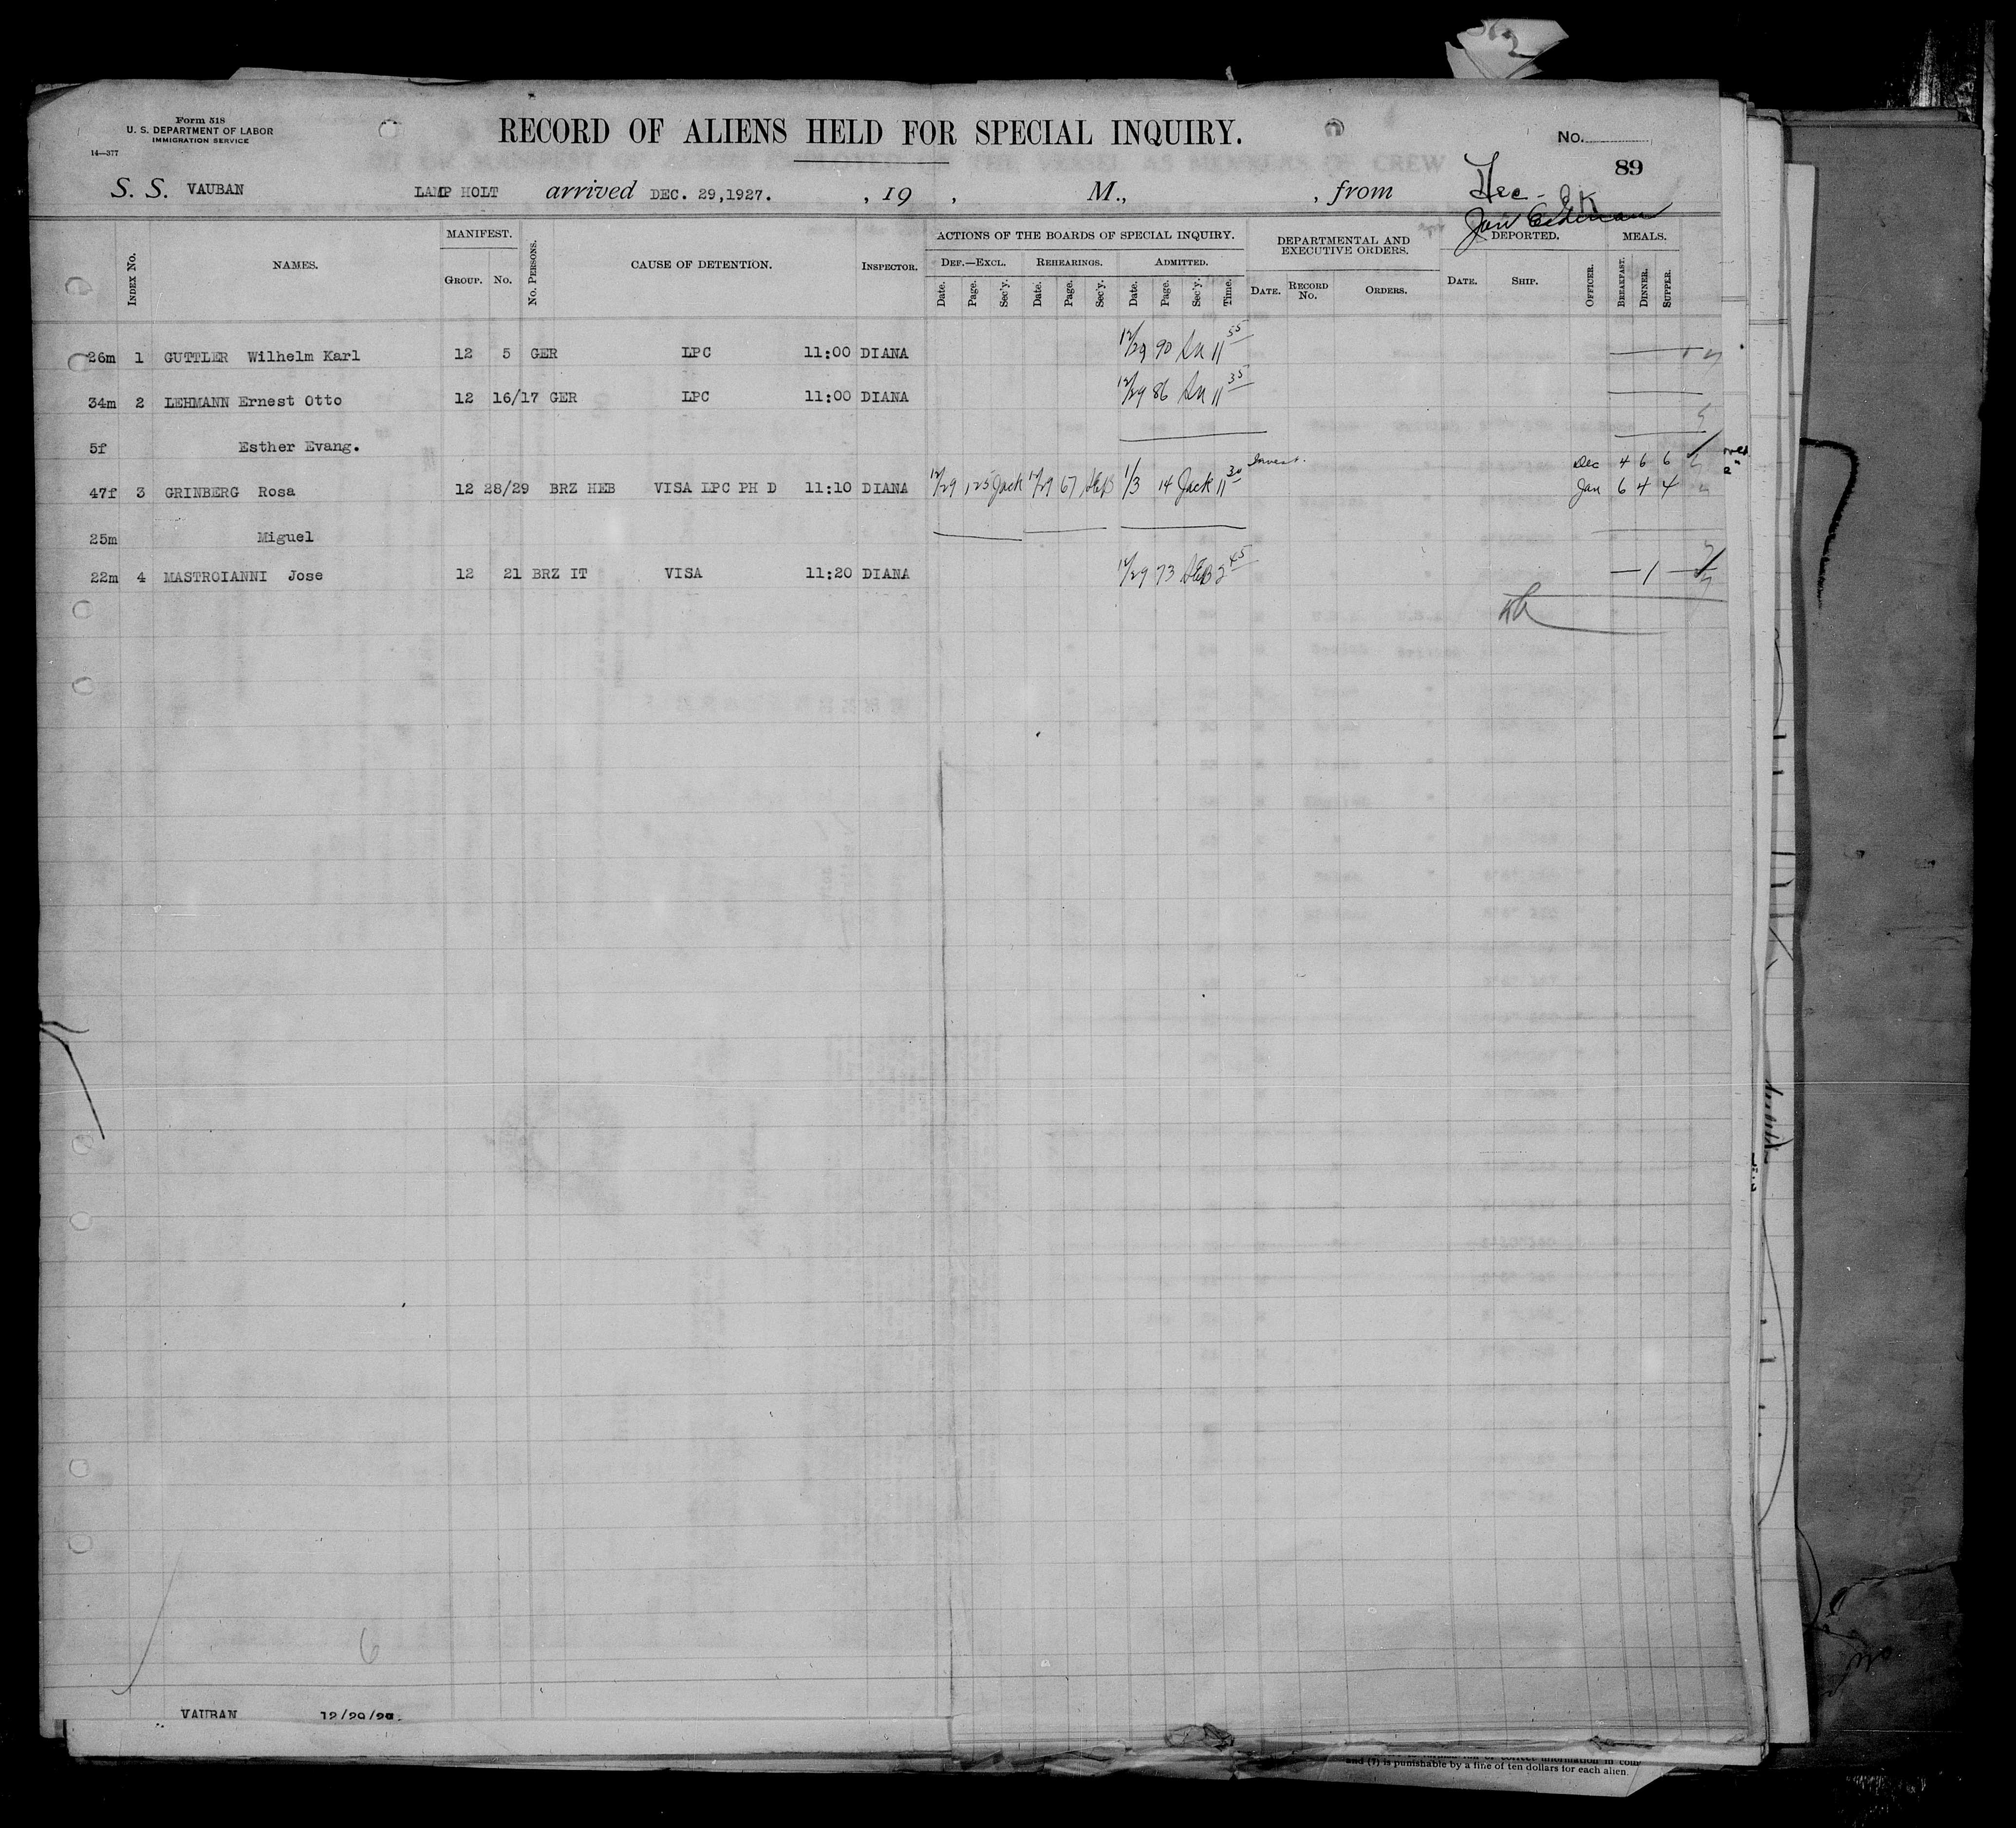 Form 518
U. S. DEPARTMENT OF LABOR
IMMIGRATION SERVICE
14—377
RECORD OF ALIENS HELD FOR SPECIAL INQUIRY.
No.
89
S. S. VAUBAN LAMP HOLT arrived DEC. 29,1927. , 19 , M., , from
Dec - OK
Jan
INDEX No. NAMES. MANIFEST. GROUP. No. No. PERSONS. CAUSE OF DETENTION. INSPECTOR. ACTIONS OF THE BOARDS OF SPECIAL INQUIRY. DEPARTMENTAL AND EXECUTIVE ORDERS. DEPORTED. MEALS.
DEF.—EXCL. REHEARINGS. ADMITTED.
Date. Page. Sec'y. Date. Page. Sec'y. Date. Page. Sec'y. Time. DATE. RECORD No. ORDERS. DATE. SHIP. OFFICER. BREAKFAST. DINNER. SUPPER.
26m 1 GUTTLER Wilhelm Karl 12 5 GER LPC 11:00 DIANA 12/29 90 11 55
34m 2 LEHMANN Ernest Otto 12 16/17 GER LPC 11:00 DIANA 12/29 86 11 35
5f Esther Evang.
Dec 4 6 6
47f 3 GRINBERG Rosa 12 28/29 BRZ HEB VISA LPC PH D 11:10 DIANA 12/29 125 Jack 12/29 67 SEB 1/3 14 Jack 11 30 Invest. Jan 6 4 4
25m Miguel
22m 4 MASTROIANNI Jose 12 21 BRZ IT VISA 11:20 DIANA 12/29 73 SEB 2 45 — 1 —
6
VAUBAN 12/29/27.
and (7) is punishable by a fine of ten dollars for each alien.